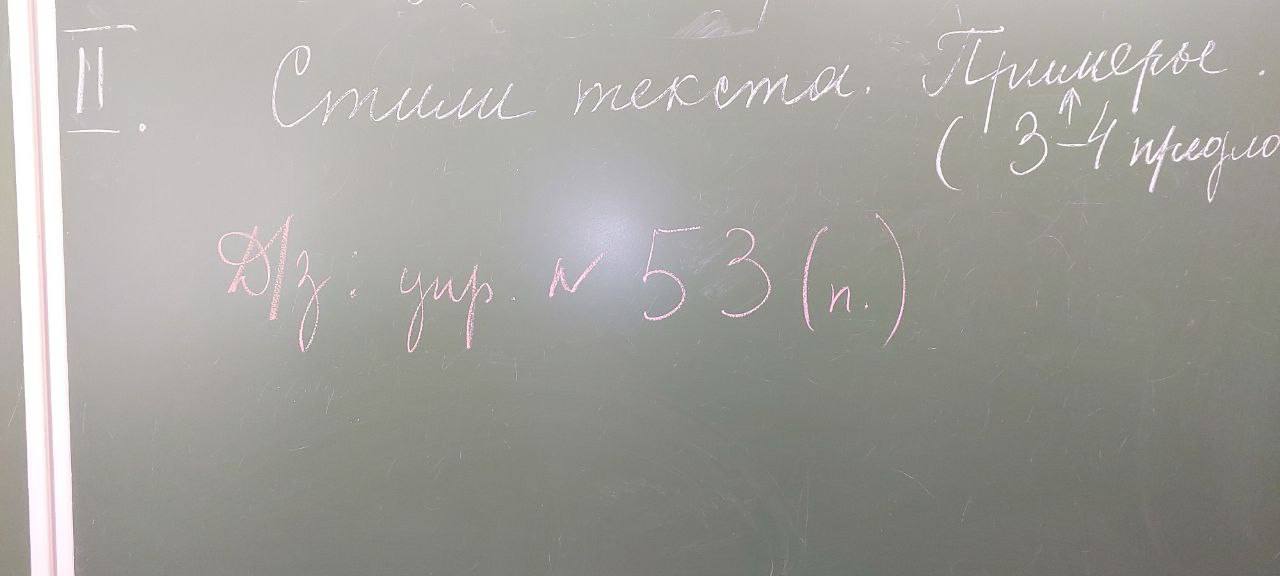 II. Стили текста. Примеры.
(3-4 предло
Д/з: упр. № 53 (п.)